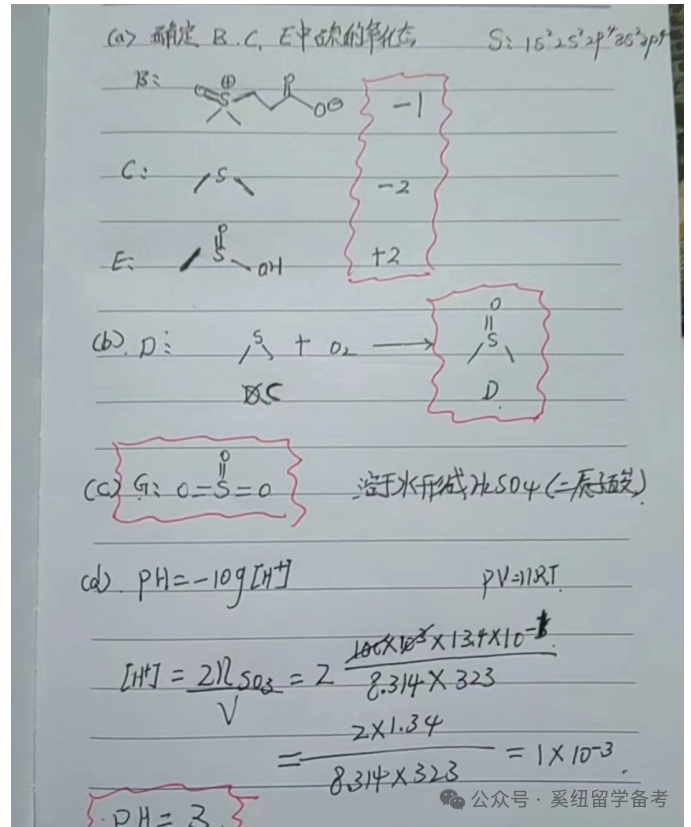 (a) 确定 B、C、E中硫的氧化态 S: 1s² 2s² 2p⁴ 3s² 3p⁴
B: S ⊕ O O⊖ -1
C: S -2
E: O S OH +2
(b). D: S + O₂ → O S
C D
(c) G: O=S=O O 溶于水形成H₂SO₄(二质子酸)
(d). PH=-log[H⁺] PV=nRT
[H⁺] = 2n SO₃ / V = 2 100×10³×13.4×10⁻¹ / 8.314×323
= 2×1.34 / 8.314×323 = 1×10⁻³.
PH=3
公众号·奚纽留学备考